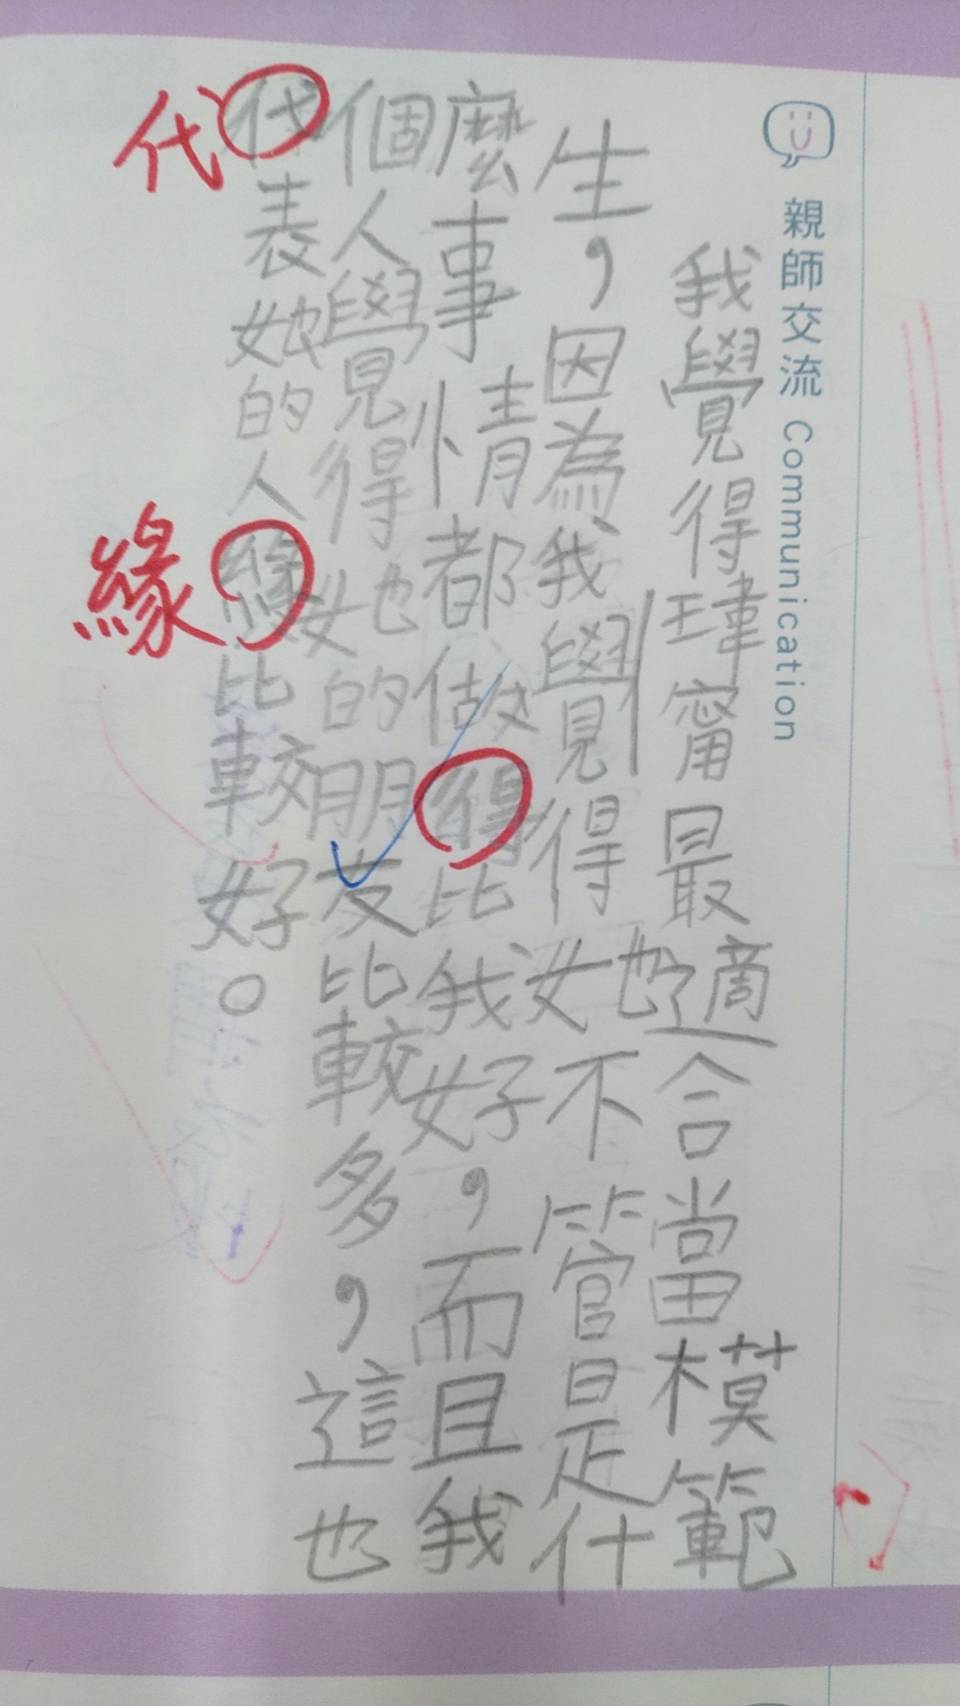 親師交流 Communication
我覺得瑋甯最適合當模範
生，因為我覺得她不管是什
麼事情都做得比我好，而且我
個人覺得她的朋友比較多，這也
代表她的人緣比較好。
代
緣